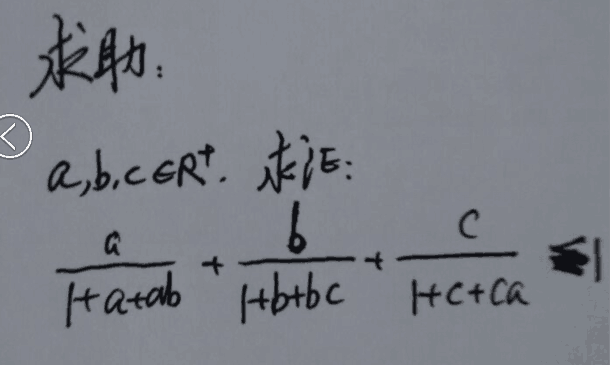 求助:
a,b,c∈R⁺. 求证:
a/(1+a+ab) + b/(1+b+bc) + c/(1+c+ca) ≤1